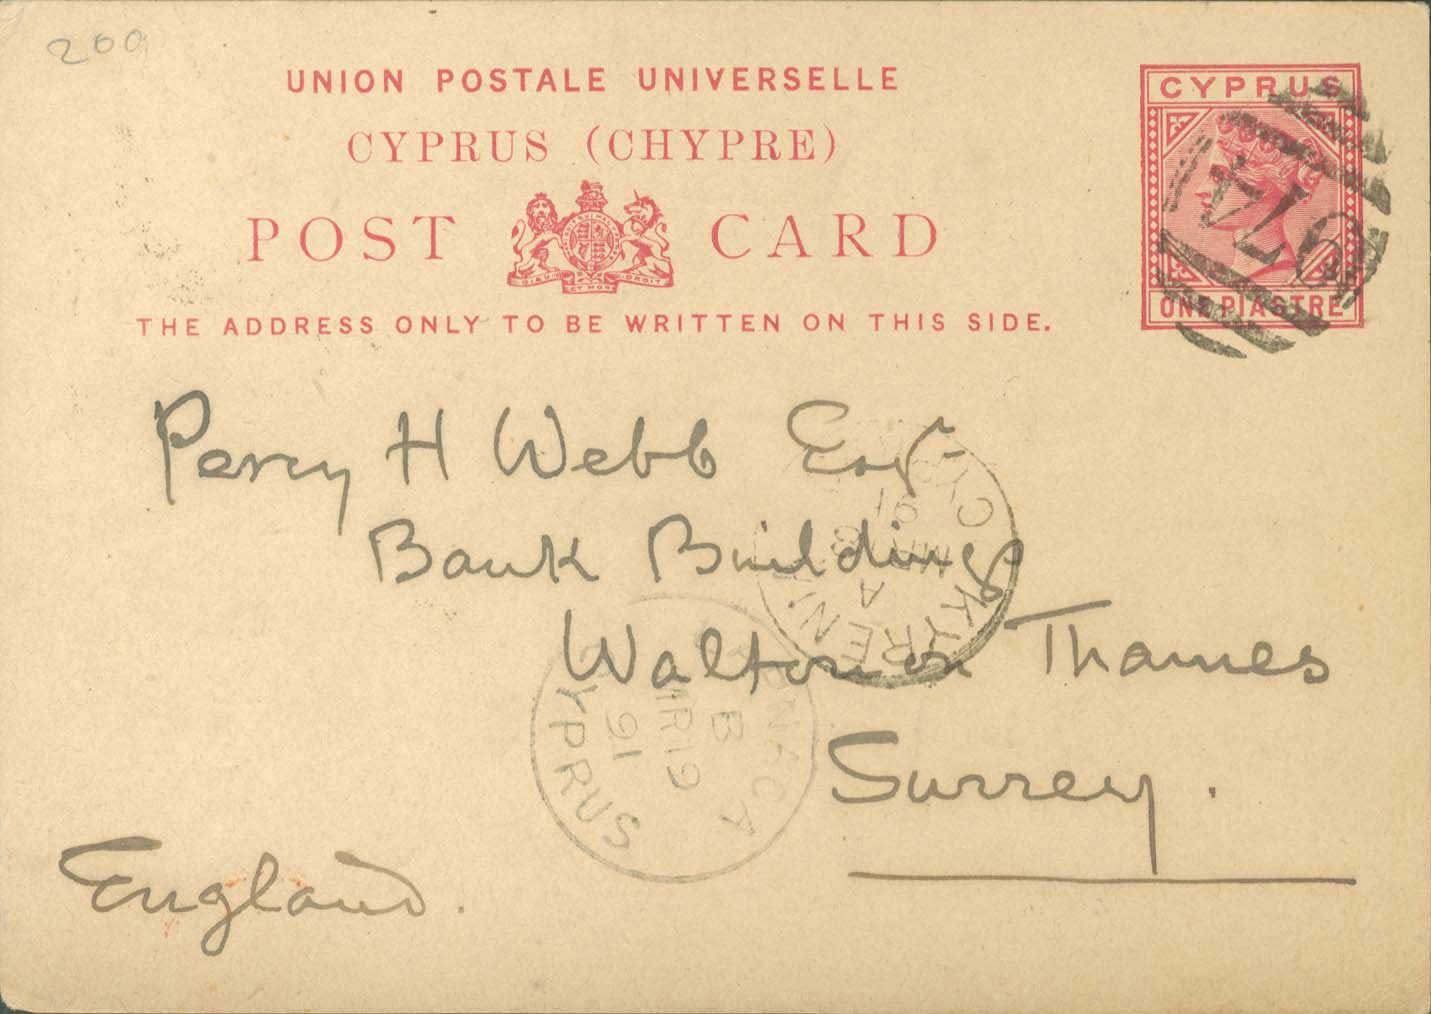 200
UNION POSTALE UNIVERSELLE
CYPRUS (CHYPRE)
POST CARD
DIEU ET MON DROIT
THE ADDRESS ONLY TO BE WRITTEN ON THIS SIDE.
CYPRUS
ONE PIASTRE
Percy H Webb Esqr
Bank Buildings
Walton on Thames
Surrey.
England.
KYRENIA
A
91
CYPRUS
B
MR 19
91